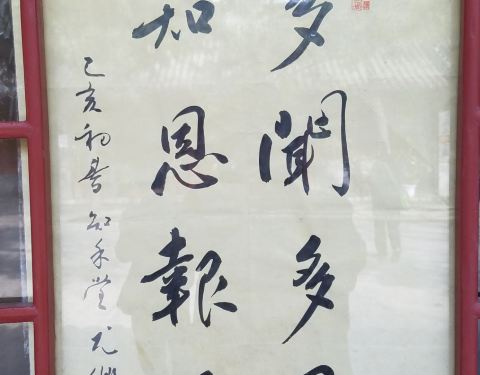 多聞多
知恩報
己亥初春知禾堂尤